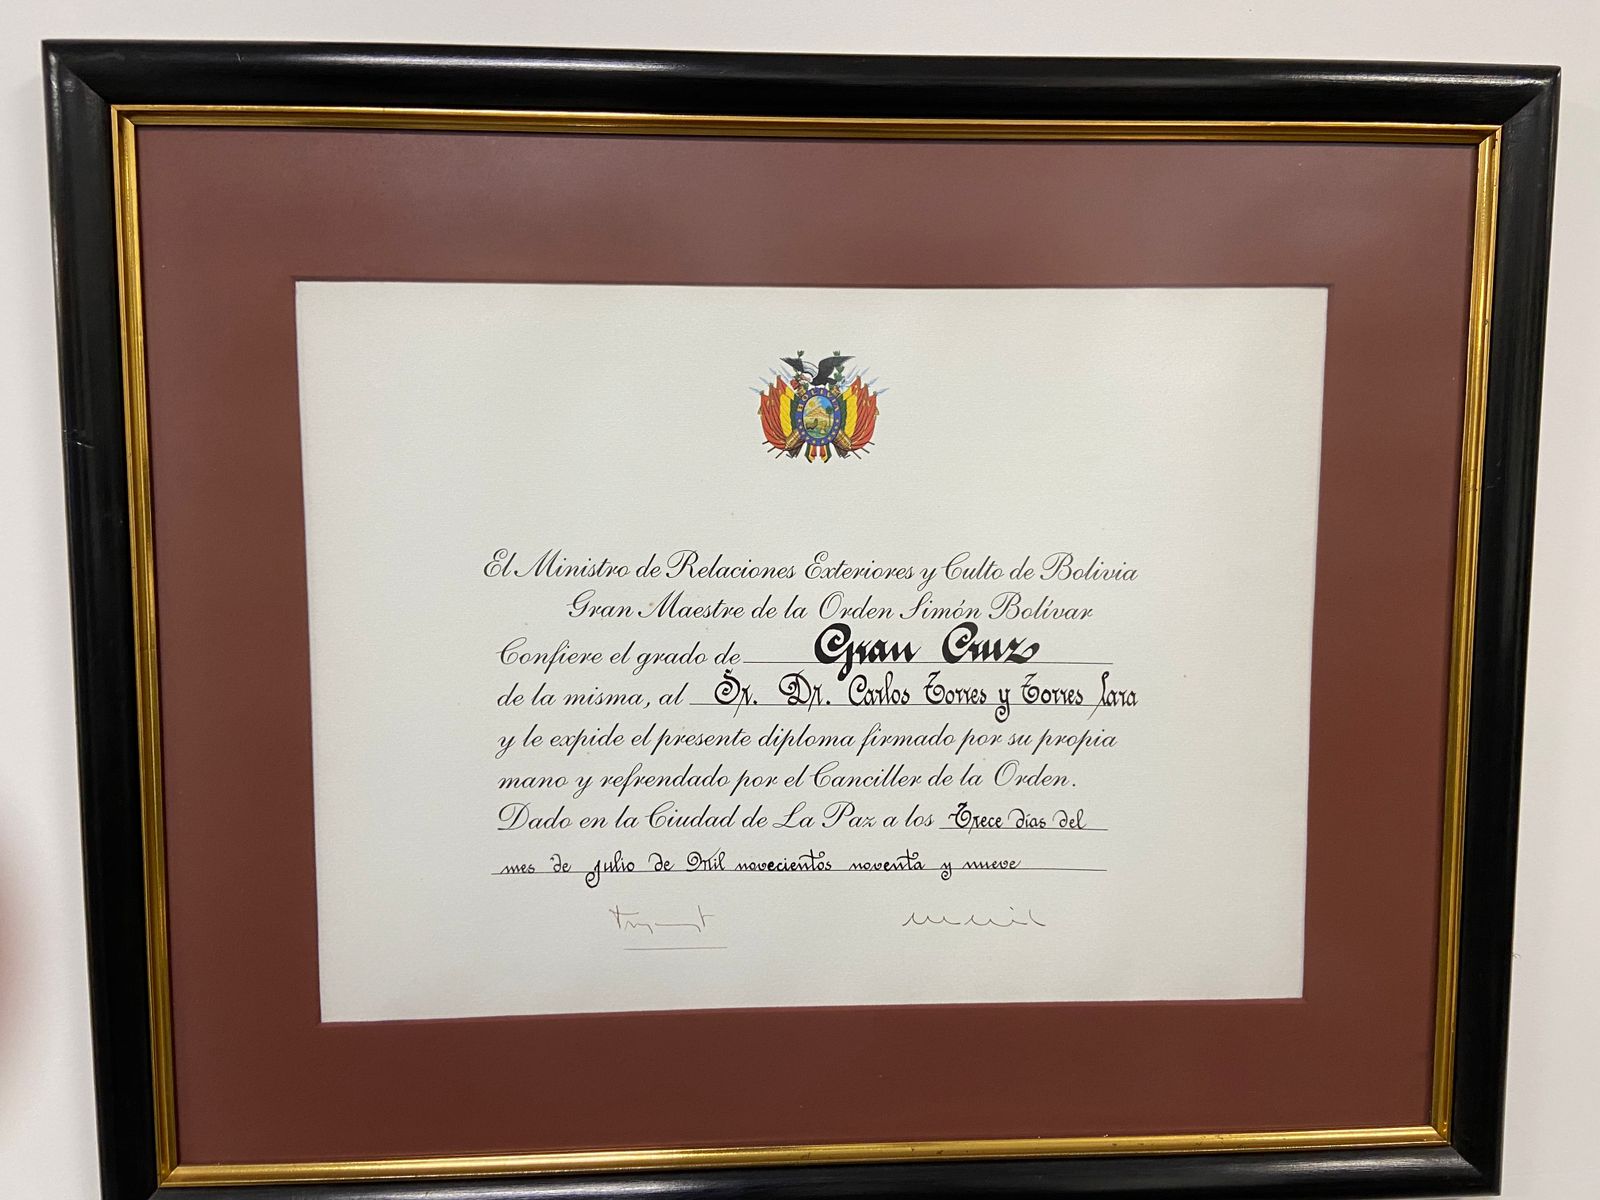 BOLIVIA
El Ministro de Relaciones Exteriores y Culto de Bolivia
Gran Maestre de la Orden Simón Bolívar
Confiere el grado de Gran Cruz
de la misma, al Sr. Dr. Carlos Torres y Torres Lara
y le expide el presente diploma firmado por su propia
mano y refrendado por el Canciller de la Orden.
Dado en la Ciudad de La Paz a los Trece días del
mes de Julio de Mil novecientos noventa y nueve